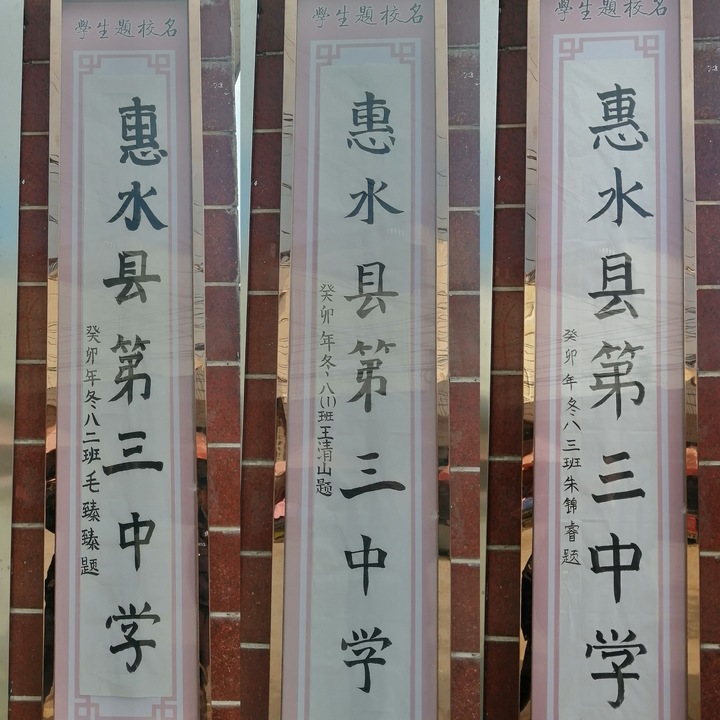 學生題校名
惠水县第三中学
癸卯年冬、八二班毛臻臻题
學生題校名
惠水县第三中学
癸卯年冬、八(1)班王清山题
學生題校名
惠水县第三中学
癸卯年冬、八三班朱锦睿题